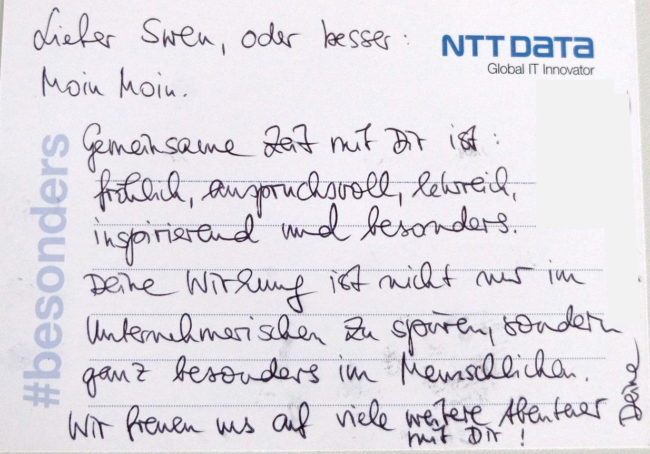 Lieber Swen, oder besser:
Moin Moin.
NTT DATA
Global IT Innovator
#besonders
Gemeinsame Zeit mit Dir ist:
fröhlich, anspruchsvoll, lehrreich,
inspirierend und besonders.
Deine Wirkung ist nicht nur im
Unternehmerischen zu spüren, sondern
ganz besonders im Menschlichen.
Wir freuen uns auf viele weitere Abenteuer
mit Dir!
Deine